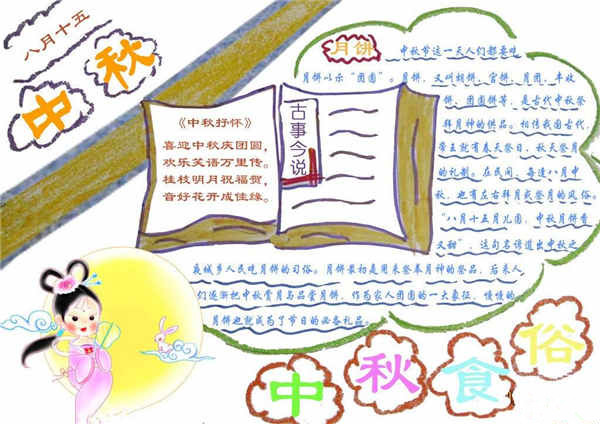 八月十五
中秋
《中秋抒怀》
喜迎中秋庆团圆,
欢乐笑语万里传。
桂枝明月祝福贺,
音好花开成佳缘。
古事今说
月饼
中秋节这一天人们都要吃
月饼以示“团圆”。月饼,又叫胡饼、宫饼、月团、丰收
饼、团圆饼等,是古代中秋祭
拜月神的供品。相传我国古代,
帝王就有春天祭日、秋天祭月
的礼制。在民间,每逢八月中
秋,也有左右拜月或祭月的风俗。
“八月十五月儿圆,中秋月饼香
又甜”,这句名谚道出中秋之
夜城乡人民吃月饼的习俗。月饼最初是用来祭奉月神的祭品,后来人
们逐渐把中秋赏月与品尝月饼,作为家人团圆的一大象征,慢慢的
月饼也就成为了节日的必备礼品。
中秋食俗